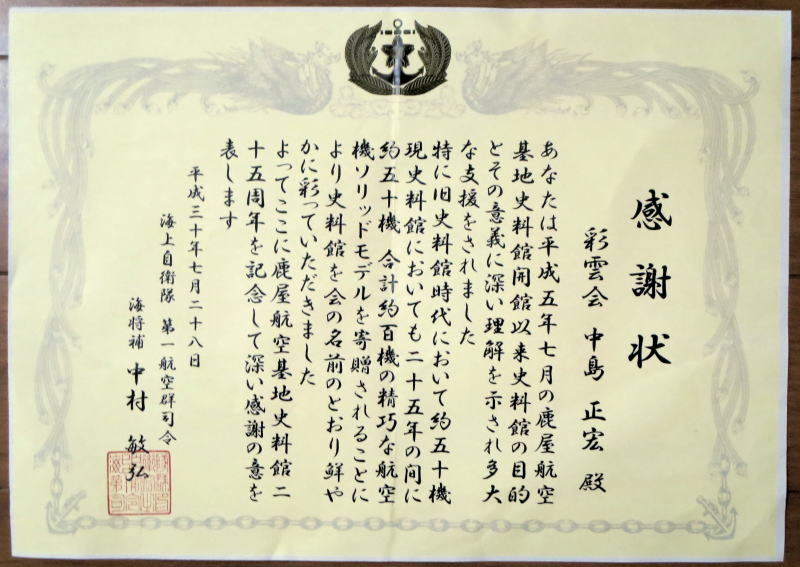 感謝状
彩雲会 中島 正宏 殿
あなたは平成五年七月の鹿屋航空
基地史料館開館以来史料館の目的
とその意義に深い理解を示され多大
な支援をされました
特に旧史料館時代において約五十機
現史料館においても二十五年の間に
約五十機 合計約百機の精巧な航空
機ソリッドモデルを寄贈されることに
より史料館を会の名前のとおり鮮や
かに彩っていただきました
よってここに鹿屋航空基地史料館二
十五周年を記念して深い感謝の意を
表します
平成三十年七月二十八日
海上自衛隊 第一航空群司令
海将補 中村 敏弘